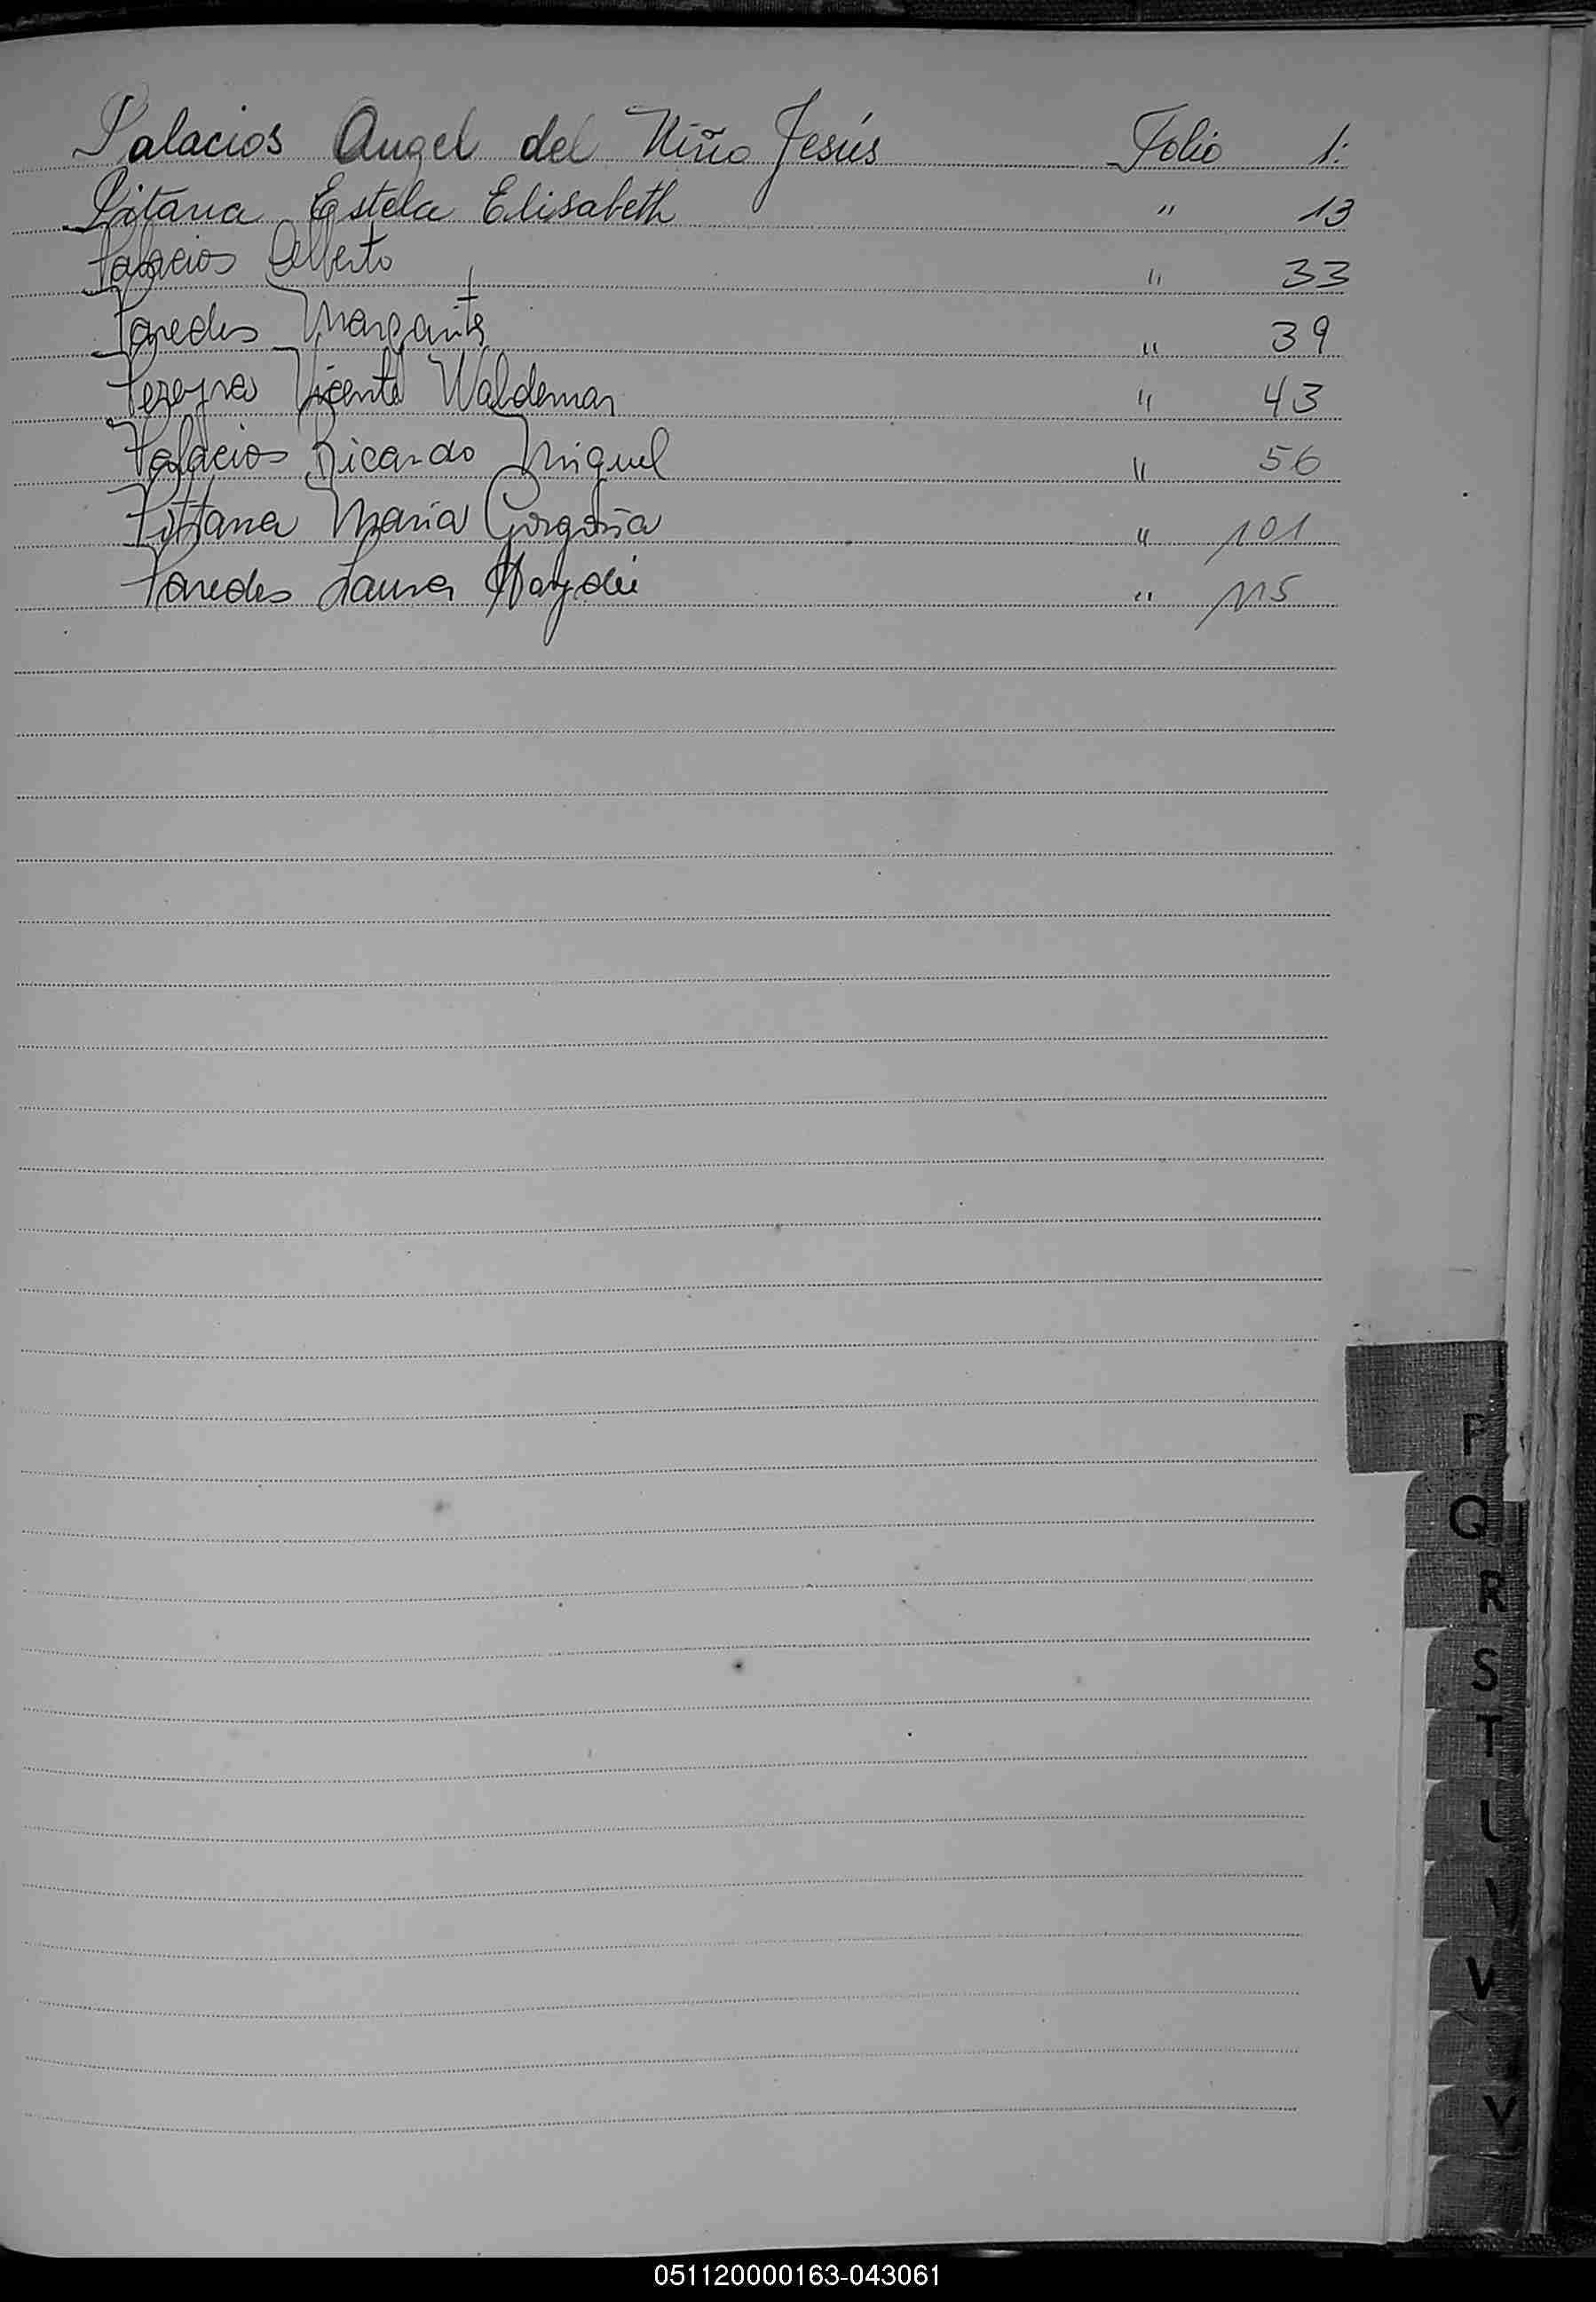 Palacios Angel del Niño Jesús Folio 1:
Pitana Estela Elisabeth " 13
Palacios Alberto " 33
Paredes Margarita " 39
Pereyra Vicente Waldemar " 43
Palacios Ricardo Miguel " 56
Pittana Maria " 101
Paredes Laura Haydée " 115
P
Q
R
S
T
V
051120000163-043061